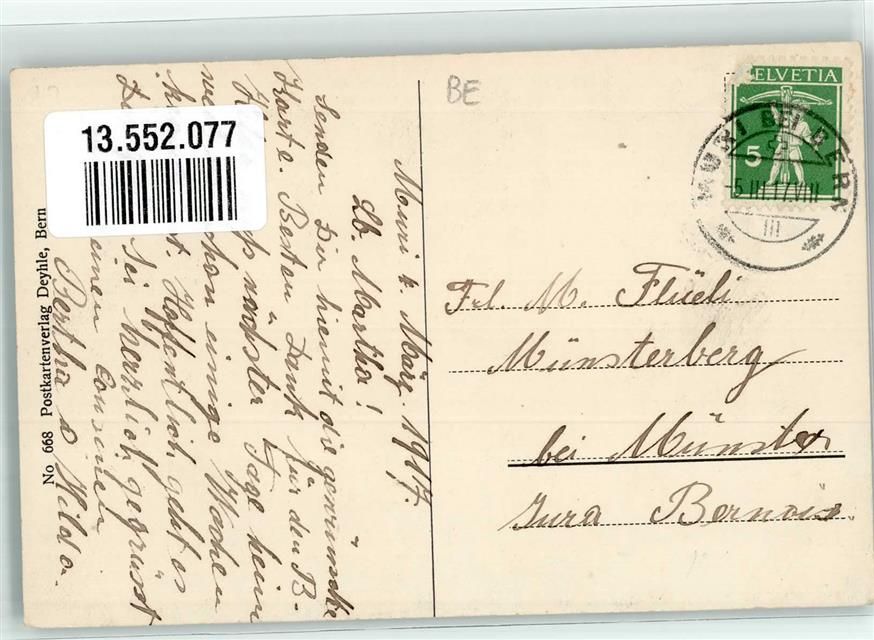 Muri 4. März. 1917.
Lb. Martha!
Senden Dir hiemit die gewünschte
Karte. Besten Dank für den B-
nächster Tage heim
schon einige Wochen
Hoffentlich geht es
Sei herzlich gegrüsst
einen Cousinen
Bertha & Hilda.
No 668 Postkartenverlag Deyhle, Bern
13.552.077
BE
HELVETIA
5
MURI BEI BERN
-5.III.17.VIII
III
Frl. M. Flüeli
Münsterberg
bei Münster
Jura Bernois.